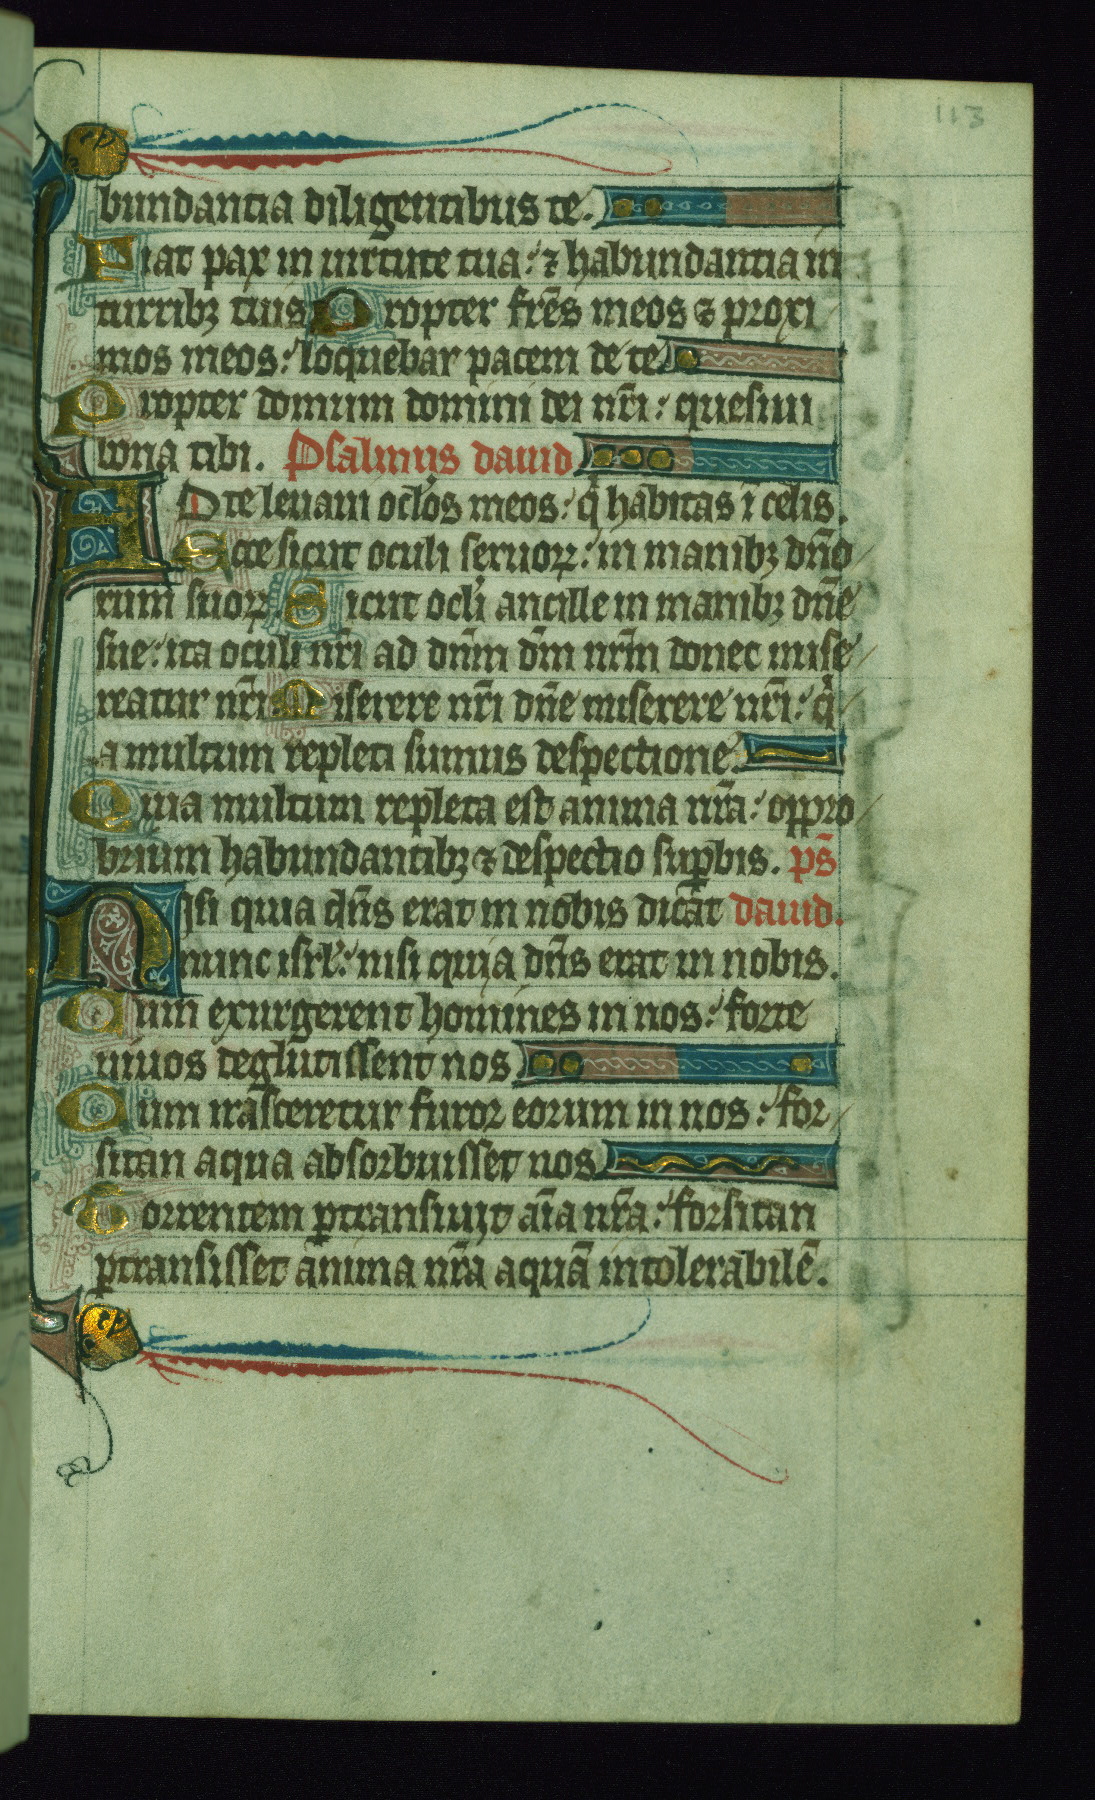 113
bundantia diligentibus te.
Fiat pax in uirtute tua: ⁊ habundantia in
turribꝫ tuis Propter fr̄es meos ⁊ proxi
mos meos: loquebar pacem de te
Propter domum domini dei nr̄i: quesiui
bona tibi. Psalmus dauid
AD te leuaui oclo̓s meos: q̇ habitas ı celis.
Ecce sicut oculi seruoꝝ: in manibꝫ dn̄o
rum suoꝝ. Sicut ocli̓ ancille in manibꝫ dn̄e
sue: ita oculi nr̄i ad dn̄m dm̄ nr̄m donec mise
reatur nr̄i Miserere nr̄i dn̄e miserere nr̄i: q̇
a multum repleti sumus despectione.
Quia multum repleta est anima nr̄a: oppro
brium habundantibꝫ ⁊ despectio suꝑbis. ps̄
Nisi quia dn̄s erat in nobis dicat dauid.
nunc isrl̄: nisi quia dn̄s erat in nobis.
Cum exurgerent homines in nos: forte
uiuos deglutissent nos
Cum irasceretur furor eorum in nos: for
sitan aqua absorbuisset nos
Torrentem ꝑtransiuit aīa nr̄a: forsitan
ꝑtransisset anima nr̄a aquā intolerabilē.